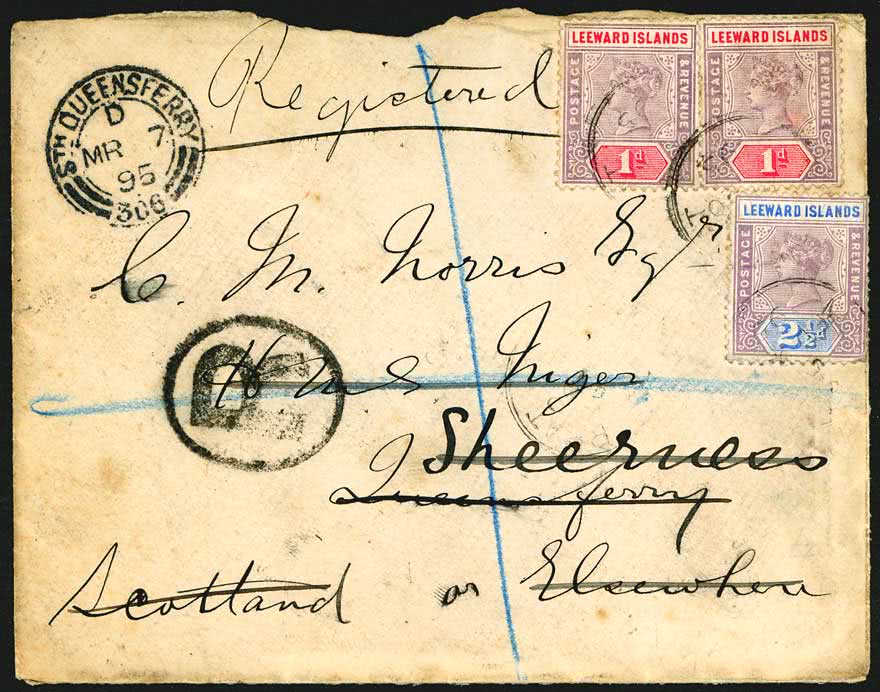 Registered
LEEWARD ISLANDS
POSTAGE & REVENUE
1d
LEEWARD ISLANDS
POSTAGE & REVENUE
1d
STH QUEENSFERRY
D
MR 7
95
306
LEEWARD ISLANDS
POSTAGE & REVENUE
2½d
C. M. Norris Esq
R
H M S Niger
Sheerness
Queensferry
Scotland or Elsewhere